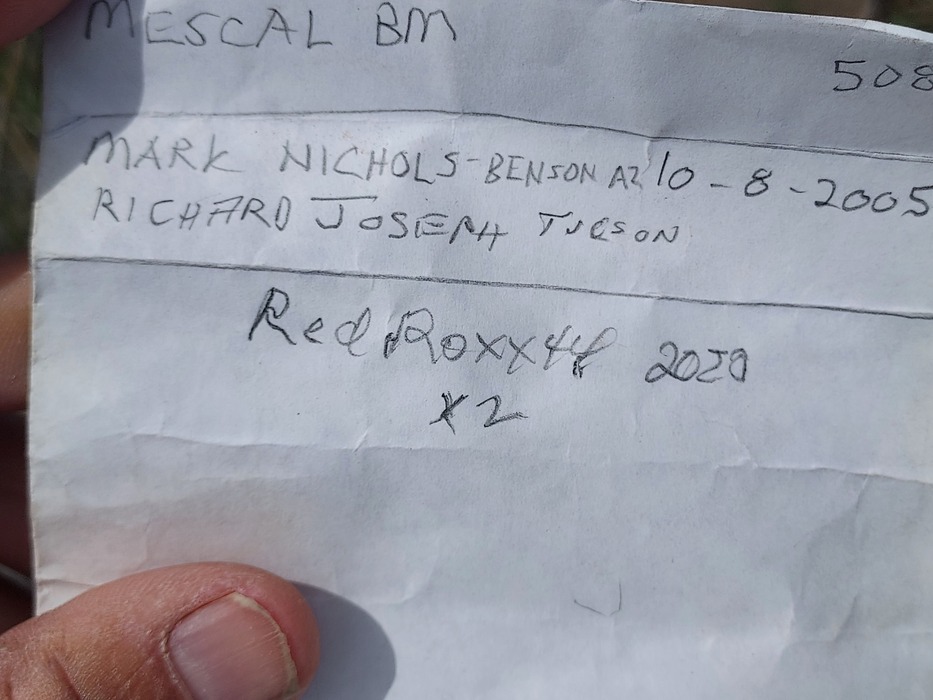 MESCAL BM
508
MARK NICHOLS-BENSON AZ 10-8-2005
RICHARD JOSEPH TUCSON
Red Roxx44 2020
x2